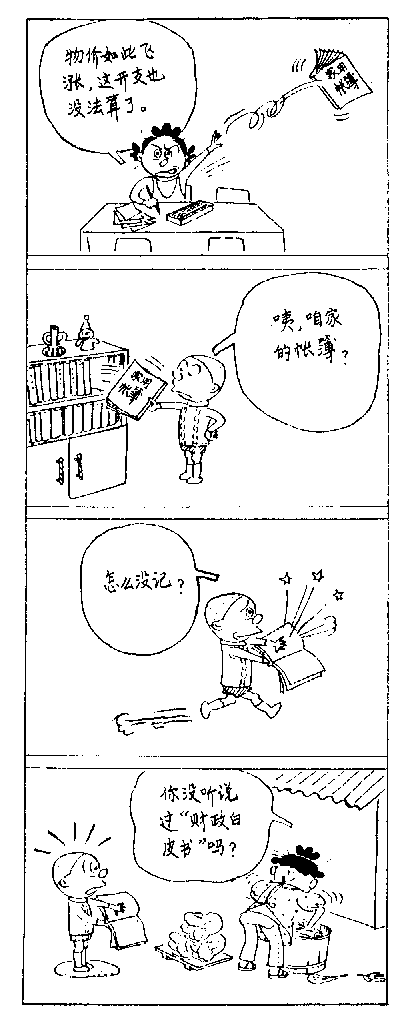 物价如此飞
涨，这开支也
没法算了。
家用
帐簿
咦，咱家
的帐簿？
家用
帐簿
怎么没记？
你没听说
过“财政白
皮书”吗？